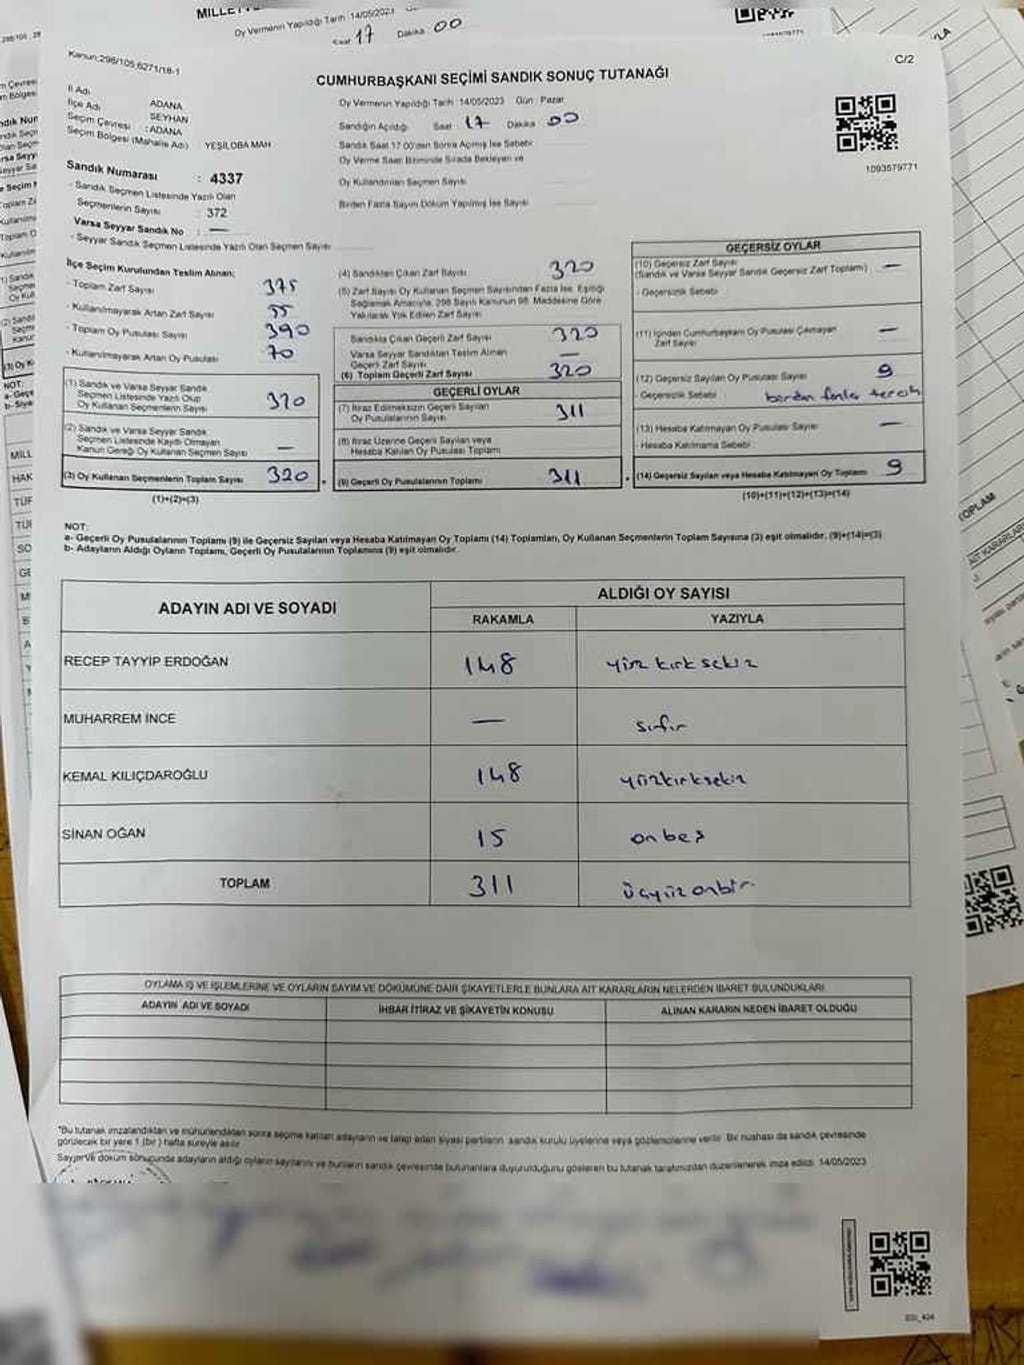 Oy Vermenin Yapıldığı Tarih 14/05/2023
Saat 17 Dakika 00
Kanun:298/105,6271/18-1
C/2
CUMHURBAŞKANI SEÇİMİ SANDIK SONUÇ TUTANAĞI
İl Adı ADANA
İlçe Adı SEYHAN
Seçim Çevresi : ADANA
Seçim Bölgesi (Mahalle Adı) YEŞİLOBA MAH
Sandık Numarası : 4337
- Sandık Seçmen Listesinde Yazılı Olan
Seçmenlerin Sayısı : 372
Varsa Seyyar Sandık No : —
- Seyyar Sandık Seçmen Listesinde Yazılı Olan Seçmen Sayısı
Oy Vermenin Yapıldığı Tarih 14/05/2023 Gün : Pazar
Sandığın Açıldığı Saat 17 Dakika 00
Sandık Saat 17 00'den Sonra Açılmış İse Sebebi
Oy Verme Saati Bitiminde Sırada Bekleyen ve
Oy Kullandırılan Seçmen Sayısı
Birden Fazla Sayım Döküm Yapılmış İse Sayısı
1093579771
İlçe Seçim Kurulundan Teslim Alınan:
- Toplam Zarf Sayısı 375
- Kullanılmayarak Artan Zarf Sayısı 55
- Toplam Oy Pusulası Sayısı 390
- Kullanılmayarak Artan Oy Pusulası 70
(1) Sandık ve Varsa Seyyar Sandık
Seçmen Listesinde Yazılı Olup
Oy Kullanan Seçmenlerin Sayısı 320
(2) Sandık ve Varsa Seyyar Sandık
Seçmen Listesinde Kaydı Olmayan
Kanun Gereği Oy Kullanan Seçmen Sayısı —
(3) Oy Kullanan Seçmenlerin Toplam Sayısı 320
(1)+(2)=(3)
(4) Sandıktan Çıkan Zarf Sayısı 320
(5) Zarf Sayısı Oy Kullanan Seçmen Sayısından Fazla İse, Eşitliği
Sağlamak Amacıyla, 298 Sayılı Kanunun 98. Maddesine Göre
Yakılarak Yok Edilen Zarf Sayısı
Sandıkta Çıkan Geçerli Zarf Sayısı 320
Varsa Seyyar Sandıktan Teslim Alınan
Geçerli Zarf Sayısı —
(6) Toplam Geçerli Zarf Sayısı 320
GEÇERLİ OYLAR
(7) İtiraz Edilmeksizin Geçerli Sayılan
Oy Pusulalarının Sayısı 311
(8) İtiraz Üzerine Geçerli Sayılan veya
Hesaba Katılan Oy Pusulası Toplamı
(9) Geçerli Oy Pusulalarının Toplamı 311
GEÇERSİZ OYLAR
(10) Geçersiz Zarf Sayısı
(Sandık ve Varsa Seyyar Sandık Geçersiz Zarf Toplamı) —
- Geçersizlik Sebebi
(11) İçinden Cumhurbaşkanı Oy Pusulası Çıkmayan
Zarf Sayısı —
(12) Geçersiz Sayılan Oy Pusulası Sayısı 9
- Geçersizlik Sebebi : birden fazla tercih
(13) Hesaba Katılmayan Oy Pusulası Sayısı —
- Hesaba Katılmama Sebebi :
(14) Geçersiz Sayılan veya Hesaba Katılmayan Oy Toplamı 9
(10)+(11)+(12)+(13)=(14)
NOT:
a- Geçerli Oy Pusulalarının Toplamı (9) ile Geçersiz Sayılan veya Hesaba Katılmayan Oy Toplamı (14) Toplamları, Oy Kullanan Seçmenlerin Toplam Sayısına (3) eşit olmalıdır. (9)+(14)=(3)
b- Adayların Aldığı Oyların Toplamı, Geçerli Oy Pusulalarının Toplamına (9) eşit olmalıdır.
ADAYIN ADI VE SOYADI
ALDIĞI OY SAYISI
RAKAMLA YAZIYLA
RECEP TAYYİP ERDOĞAN 148 yüz kırk sekiz
MUHARREM İNCE — sıfır
KEMAL KILIÇDAROĞLU 148 yüzkırksekiz
SİNAN OĞAN 15 onbeş
TOPLAM 311 üçyüzonbir
OYLAMA İŞ VE İŞLEMLERİNE VE OYLARIN SAYIM VE DÖKÜMÜNE DAİR ŞİKAYETLERLE BUNLARA AİT KARARLARIN NELERDEN İBARET BULUNDUKLARI
ADAYIN ADI VE SOYADI İHBAR İTİRAZ VE ŞİKAYETİN KONUSU ALINAN KARARIN NEDEN İBARET OLDUĞU
*Bu tutanak imzalandıktan ve mühürlendikten sonra seçime katılan adayların ve talep eden siyasi partilerin sandık kurulu üyelerine veya gözlemcilerine verilir. Bir nüshası da sandık çevresinde
görülecek bir yere 1 (bir) hafta süreyle asılır.
Sayım ve döküm sonucunda adayların aldığı oyların sayılarını ve bunların sandık çevresinde bulunanlara duyurulduğunu gösteren bu tutanak tarafımızdan düzenlenerek imza edildi. 14/05/2023